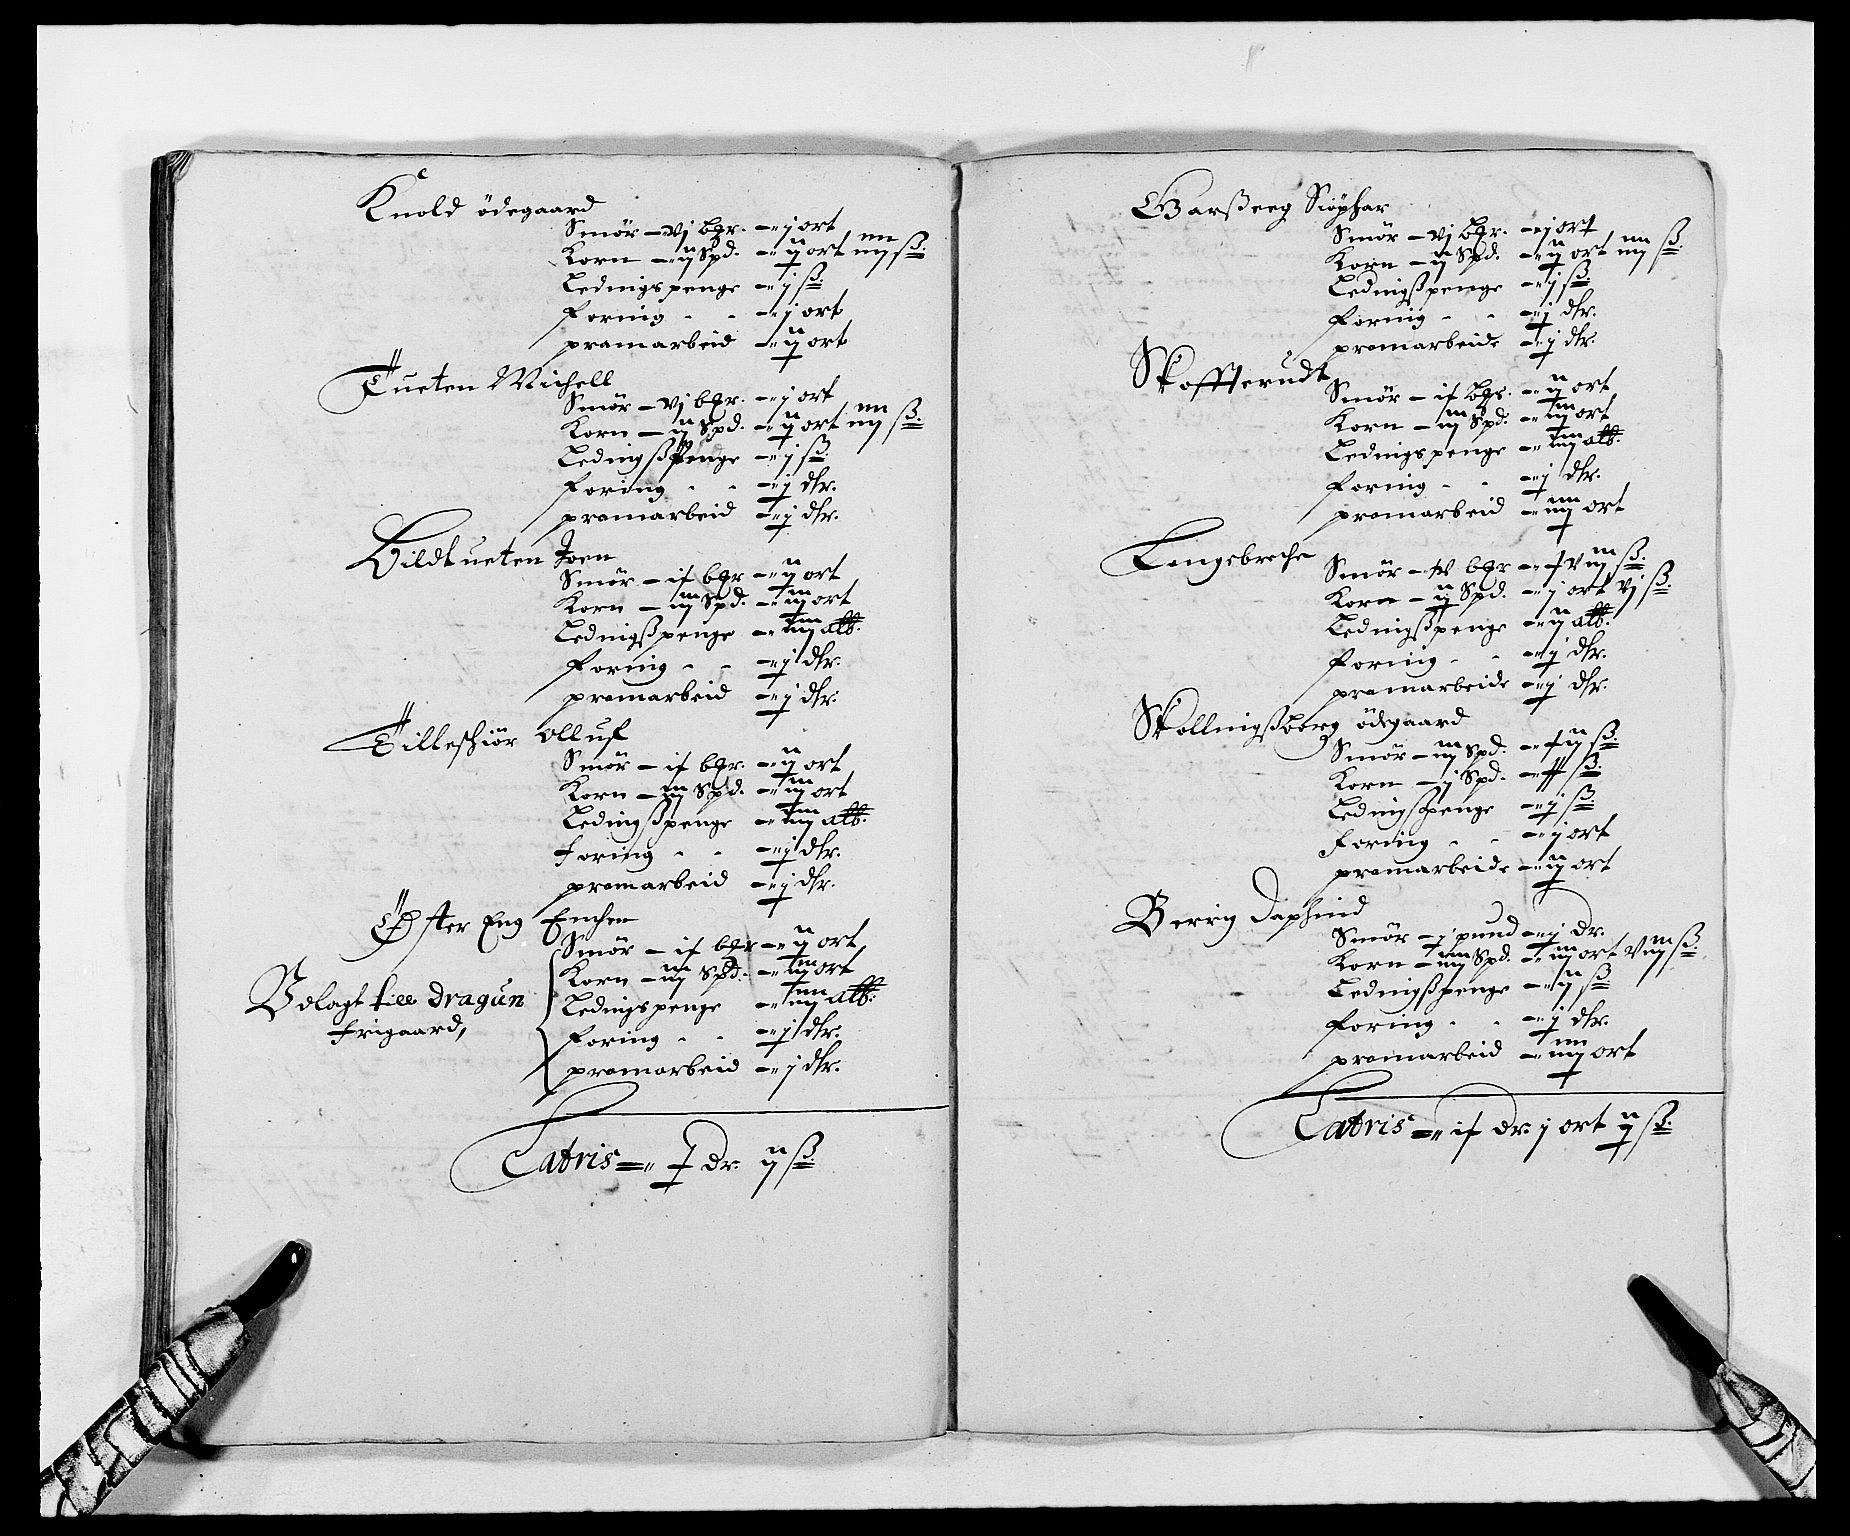 Knold ødegaard
Smör – vj bgr. – j ort
Korn – ij Spd. – ij ort iiij ß.
Ledingspenge – j ß.
Foring - - – j ort
pramarbeid – ij ort
Tueten Michell
Smör – vj bgr. – j ort
Korn – ij Spd. – ij ort iiij ß.
Ledingßpenge – j ß.
Foring - - – j dlr.
pramarbeid – j dlr.
Hildtueten Joen
Smör – ix bgr – ij ort
Korn – iij Spd. – iij ort
Ledingßpenge – iiij alb.
Foring - - – j dlr.
pramarbeid – j dlr.
Tilleskiör Olluf
Smör – ix bgr. – ij ort
Korn – iij Spd. – iij ort
Ledingßpenge – iiij alb.
Foring - - – j dlr.
pramarbeid – j dlr.
Öster Eng Enchen
Smör – ix bgr – ij ort,
Korn – iij Spd. – iij ort
Ledingspenge – iiij alb:
Foring - - – j dlr.
pramarbeid – j dlr.
Udlagt till Dragun
frigaard,
Latris dr. ij ß
Garßeeg Siöphar
Smör – vj bgr. – j ort
Korn – ij Spd. – ij ort iiij ß.
Ledingßpenge – j ß.
Foring - - – j dlr.
pramarbeide – j dlr.
Skoffterudt
Smör – ix bgr. – ij ort
Korn – iij Spd. – iij ort
Ledingspenge – iiij alb.
Foring - - – j dlr.
pramarbeid – iiij ort
Langebreche
Smör – xv bgr – xviij ß.
Korn – ij Spd. – j ort vj ß.
Ledingßpenge – ij alb.
Foring - - – j dlr.
pramarbeide – j dlr.
Skollingßberg ödegaard
Smör – iij Spd. – xij ß.
Korn – j Spd. – xx ß.
Ledingßpenge – j ß
Foring - - – j ort
pramarbeide – ij ort
Berrig Daphinid
Smör – j pund – j dr.
Korn – iiij Spd. – iij ort viij ß.
Ledingßpenge – ij ß
Foring - - – j dlr.
pramarbeid – iiij ort
Latris – ix dr. j ort ij ß.